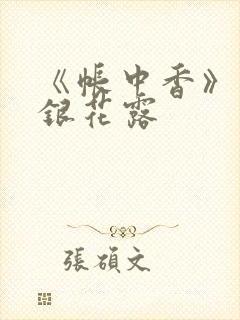 《帳中香》
銀花露
張碩文